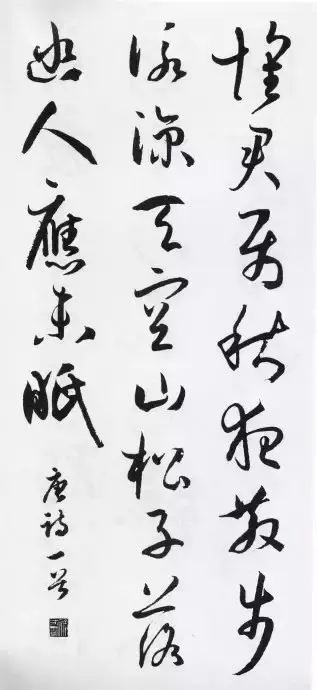 懷君屬秋夜散步
詠涼天空山松子落
幽人應未眠
唐詩一首